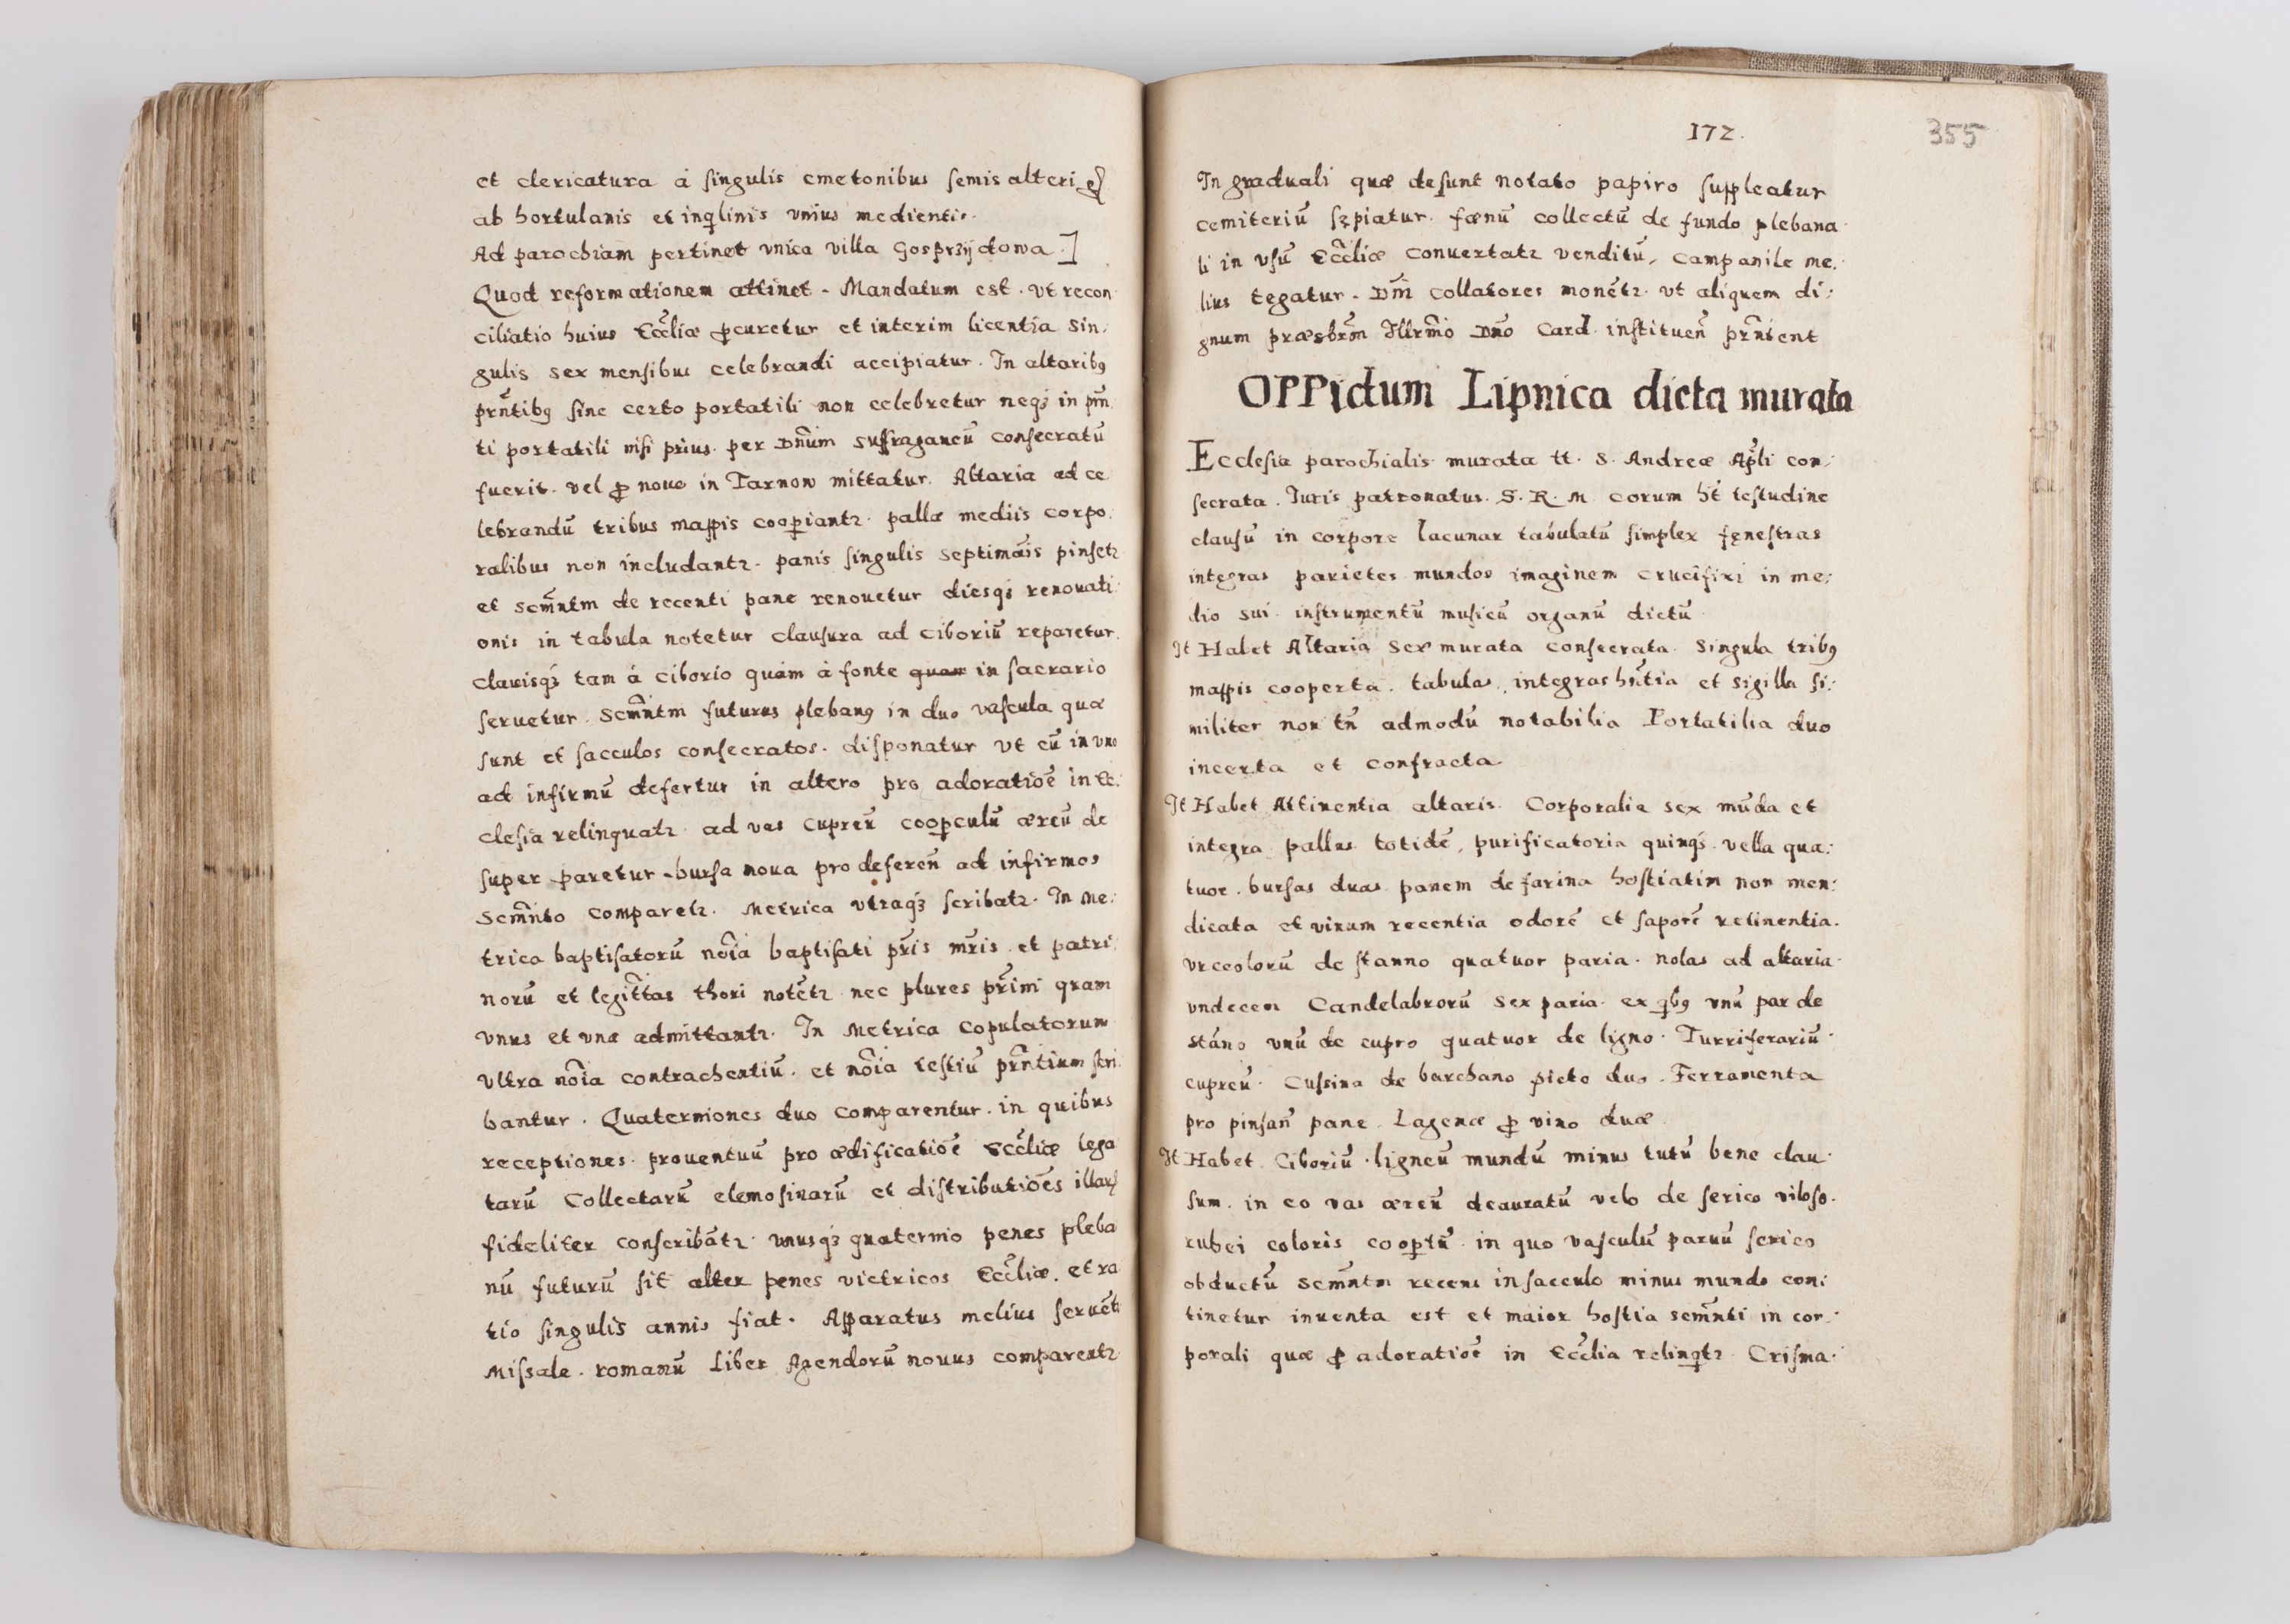 et clericatura á singulis cmetonibus semis alteri
ab hortulanis et inqlinis vnius medientis.
Ad parochiam pertinet vnica villa Gosprzijdowa.]
Quod reformationem attinet. Mandatum est. vt recon
ciliatio huius Eccliæ ꝓcuretur et interim licentia sin:
gulis sex mensibus celebrandi accipiatur. In altaribꝯ
prñtibꝯ sine certo portatili non celebretur neqꝫ in prñ
ti portatili nisi prius. per Dnũm suffraganeũ consecratũ
fuerit. vel ꝓ nouo in Tarnow mittatur. Altaria ad ce
lebrandũ tribus mappis cooꝑiantꝛ. pallæ mediis corpo:
ralibus non includantꝛ. panis singulis septimãis pinsetꝛ
et Scm̃ntm de recenti pane renouetur diesqꝫ renouati:
onis in tabula notetur clausura ad ciboriũ reparetur.
clauisqꝫ tam á ciborio quám á fonte quam in sacrario
seruetur. Scm̃ntm futurus plebanꝯ in duo vascula quæ
sunt et sacculos consecratos. disponatur vt cũ in vno
ad infirmũ defertur in altero pro adoratiõe in Ec:
clesia relinquatꝛ. ad vas cupreũ cooꝑculũ æreũ de
super paretur. bursa noua pro deferen̄ ad infirmos
Scm̃nto comparetꝛ. Metrica vtraqꝫ scribatꝛ. In Me:
trica baptisatorũ nõia baptisati pr̃is mr̃is. et patri:
norũ et legittãs thori notẽtꝛ nec plures pr̃imi qram
vnus et vna admittantꝛ. In Metrica Copulatorum
Vltra nõia contrachentiũ. et nõia testiũ prñtium scri:
bantur. Quaterniones duo comparentur. in quibus
receptiones. prouentuũ pro ædificatiõe Eccliæ lega
tarũ Collectarũ elemosinarũ et distributiões illarꝝ
fideliter conscribãtꝛ. vnusqꝫ quaternio penes pleba
nũ futurũ sit alter penes victricos Eccliæ. et ra
tio singulis annis fiat. Apparatus melius seruẽtꝛ
Missale. romanũ Liber Agendorũ nouus comparentꝛ
172.
355
In graduali quæ desunt notato papiro suppleatur
cemiteriũ sępiatur. fænũ collectũ de fundo plebana
li in vsũ Eccliæ conuertatꝛ venditũ, Campanile me:
lius tęgatur. Dñi Collatores monẽtꝛ. vt aliquem di:
gnum præsbr̃m Illrm̃o Dño Card. instituen̄ prñtent
OPPidum Lipnica dicta murata
Ecclesia parochialis murata tt. S. Andreæ Apl̃i con:
secrata. Iuris patronatus. S. R. M. Corum ht̃ testudine
clausũ in corpore lacunar tabulatũ simplex fęnestras
integras parietes mundos imaginem crucifixi in me:
dio sui. instrumentũ musicũ organũ dictũ
It Habet Altaria Sex murata consecrata. Singula tribꝯ
mappis cooperta. tabulas integras hñtia et sigilla si:
militer non tñ admodũ notabilia Portatilia duo
incerta et confracta
It Habet Attinentia altaris. Corporalia sex mũda et
integra pallas totidẽ, purificatoria quinqꝫ. vella qua:
tuor. bursas duas panem de farina hostiatim non men:
dicata et vinum recentia odorẽ et saporẽ retinentia.
vrceolorũ de stanno quatuor paria. nolas ad altaria.
vndecem Candelabrorũ Sex paria. ex qbꝯ vnũ par de
stáno vnũ de cupro quatuor de ligno. Turriferariũ.
cupreũ. Cussina de barchano picto duo. Ferramenta
pro pinsan̄ pane. Lagenæ ꝓ vino duæ
It Habet Ciboriũ. ligneũ mundũ minus tutũ bene clau:
sum. in eo vas æreũ deauratũ velo de serico viloso.
rubei coloris cooꝑtũ. in quo vasculũ paruũ serico
obductũ Scm̃ntm recens in sacculo minus mundo con:
tinetur inuenta est et maior hostia scm̃nti in cor:
porali quæ ꝓ adoratiõe in Ecclia relinqtꝛ. Crisma: